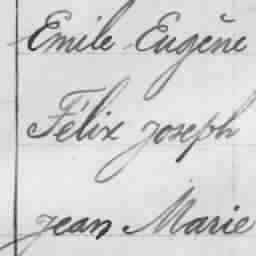 Emile Eugène
Félix Joseph
Jean Marie